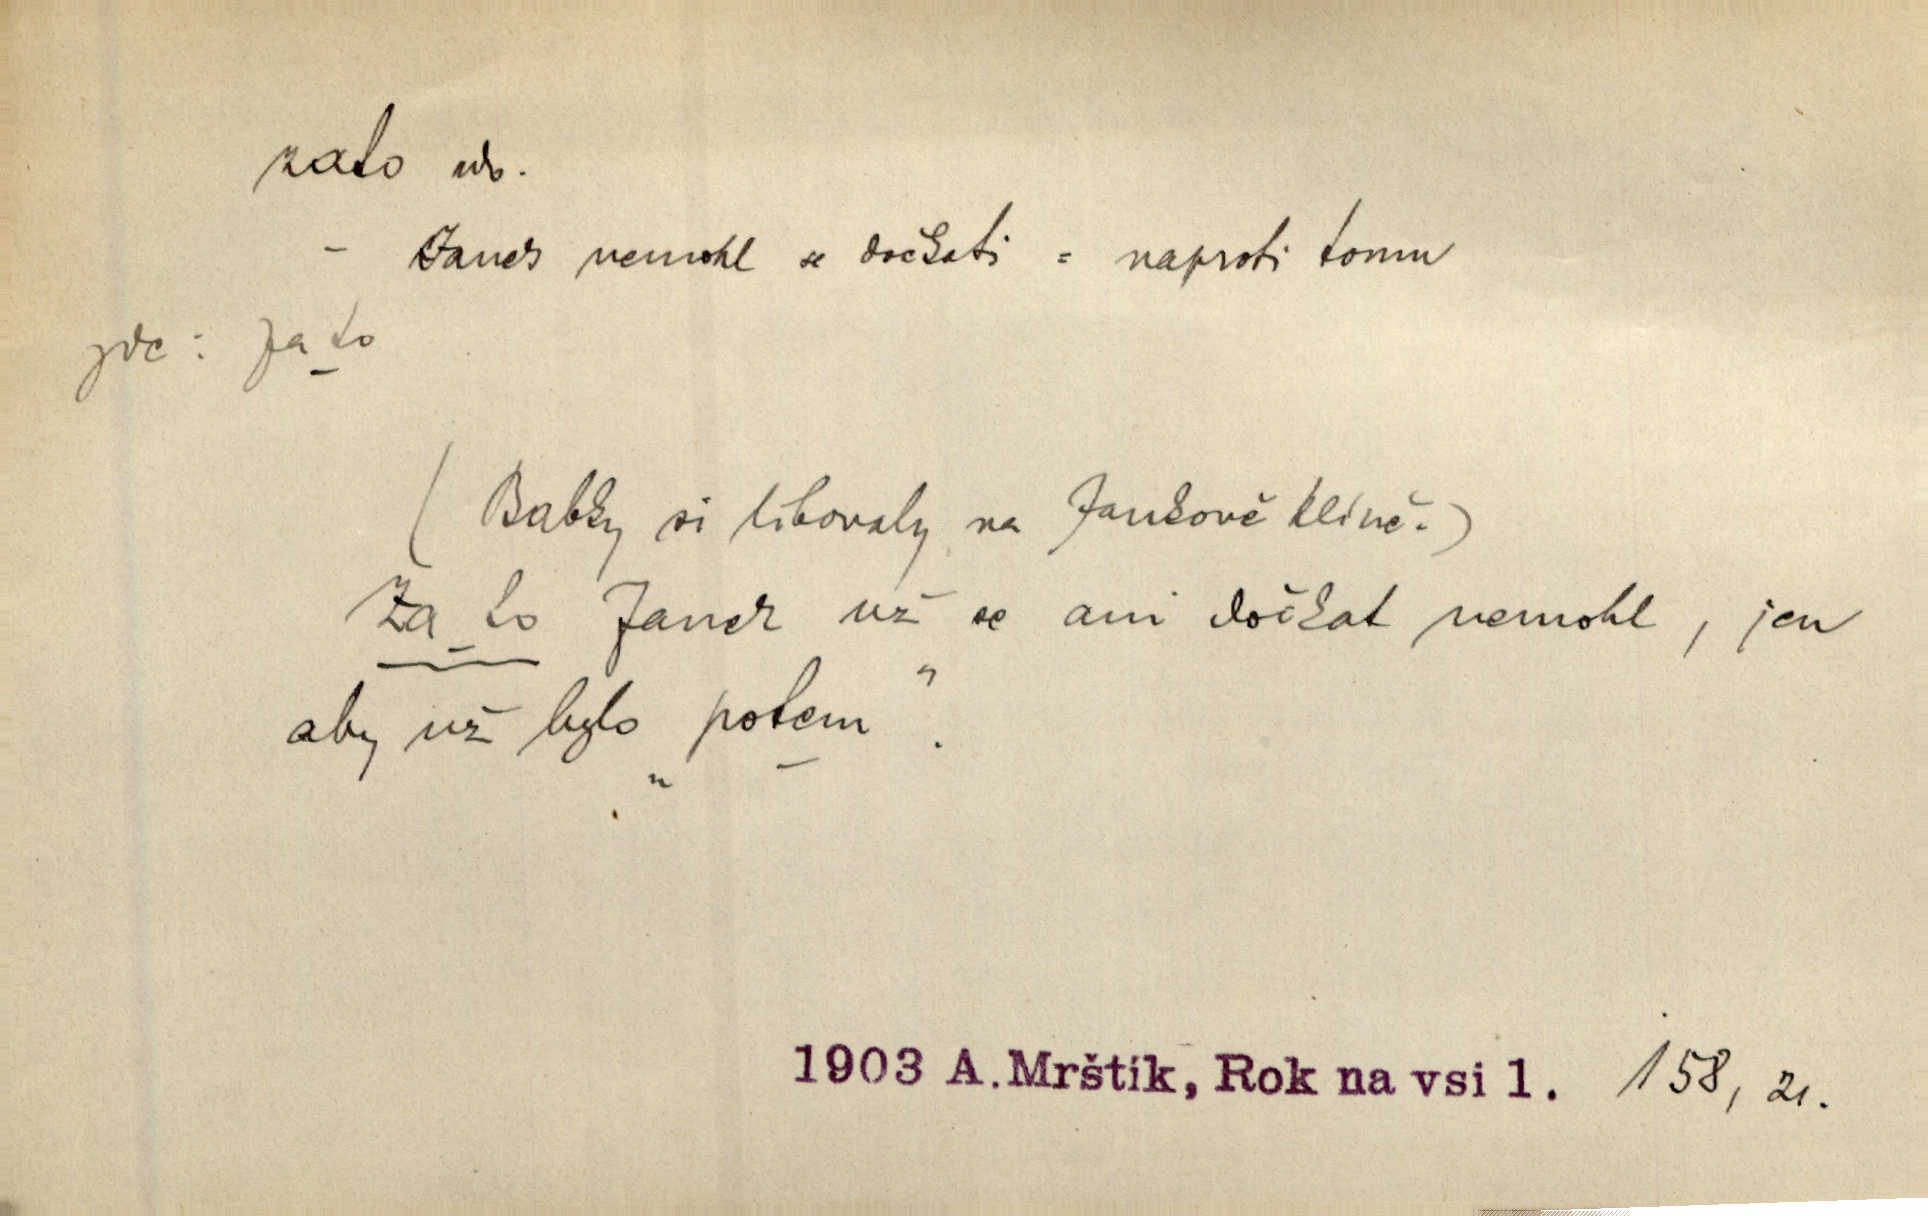 zato adv.
– Janek nemohl se dočkati = naproti tomu
zde: za to
(Babky si libovaly na Jankově klíně.)
Za to Janek už se ani dočkat nemohl, jen
aby už bylo „potem“.
1903 A.Mrštík, Rok na vsi 1. 158, 21.